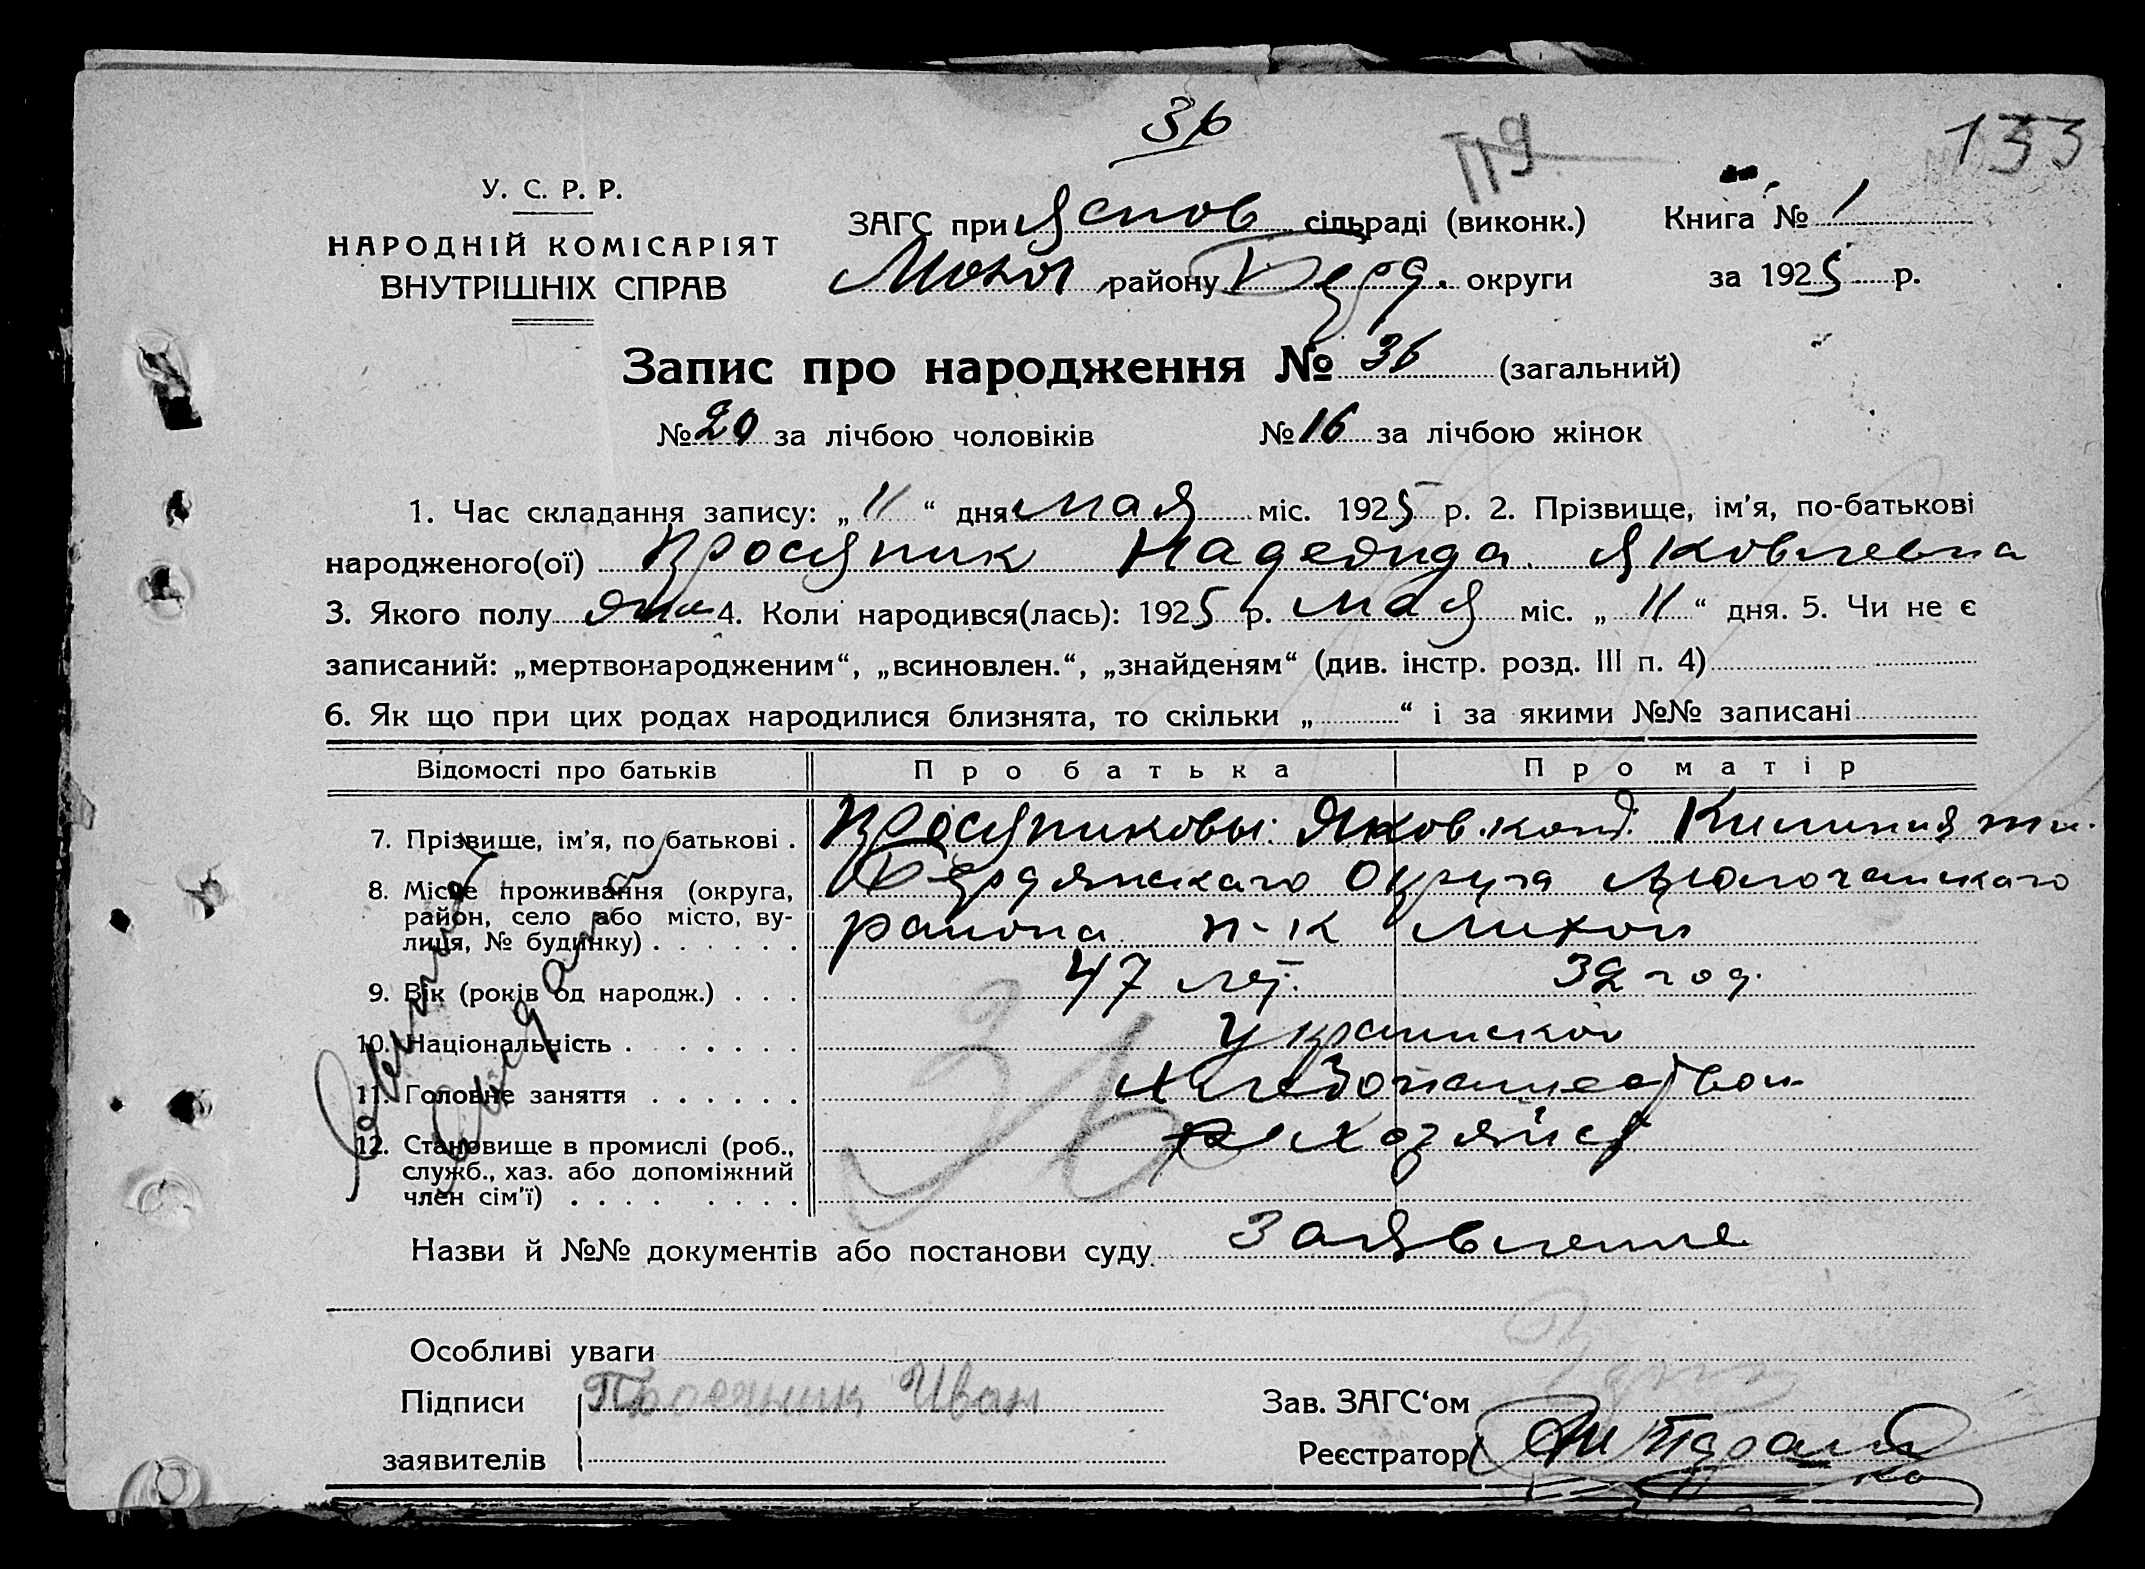 36
119
133
У. С. Р. Р.
НАРОДНІЙ КОМІСАРІЯТ
ВНУТРІШНІХ СПРАВ
ЗАГС при Яснов сільраді (виконк.)
Молоч району Берд. округи
Книга № 1
за 1925 р.
Запис про народження № 36 (загальний)
№ 20 за лічбою чоловіків № 16 за лічбою жінок
1. Час складання запису: „ 11 “ дня мая міс. 1925 р. 2. Прізвище, ім'я, по-батькові
народженого(ої) Просяник Надежида Яковлевна
3. Якого полу жин 4. Коли народився(лась): 1925 р. мая міс. „ 11 “ дня. 5. Чи не є
записаний: „мертвонародженим“, „всиновлен.“, „знайденям“ (див. інстр. розд. III п. 4)
6. Як що при цих родах народилися близнята, то скільки „ “ і за якими №№ записані
Відомості про батьків Про батька Про матір
7. Прізвище, ім'я, по батькові . Просяниковы: Яков.
8. Місце проживання (округа, Бердянскаго Округа Молочанскаго
район, село або місто, ву- района п-к
лиця, № будинку) . . . . . .
9. Вік (років од народж.) . . . 47 лет. 32 год.
10. Національність . . . . . . . Украинской
11. Головне заняття . . . . . . Хлебопашеством
12. Становище в промислі (роб.,
служб., хаз. або допоміжний
член сім'ї) . . . . . . . .
36
Назви й №№ документів або постанови суду Заявление
Особливі уваги
Підписи Просяник Иван
заявителів
Зав. ЗАГС‘ом
Реєстратор